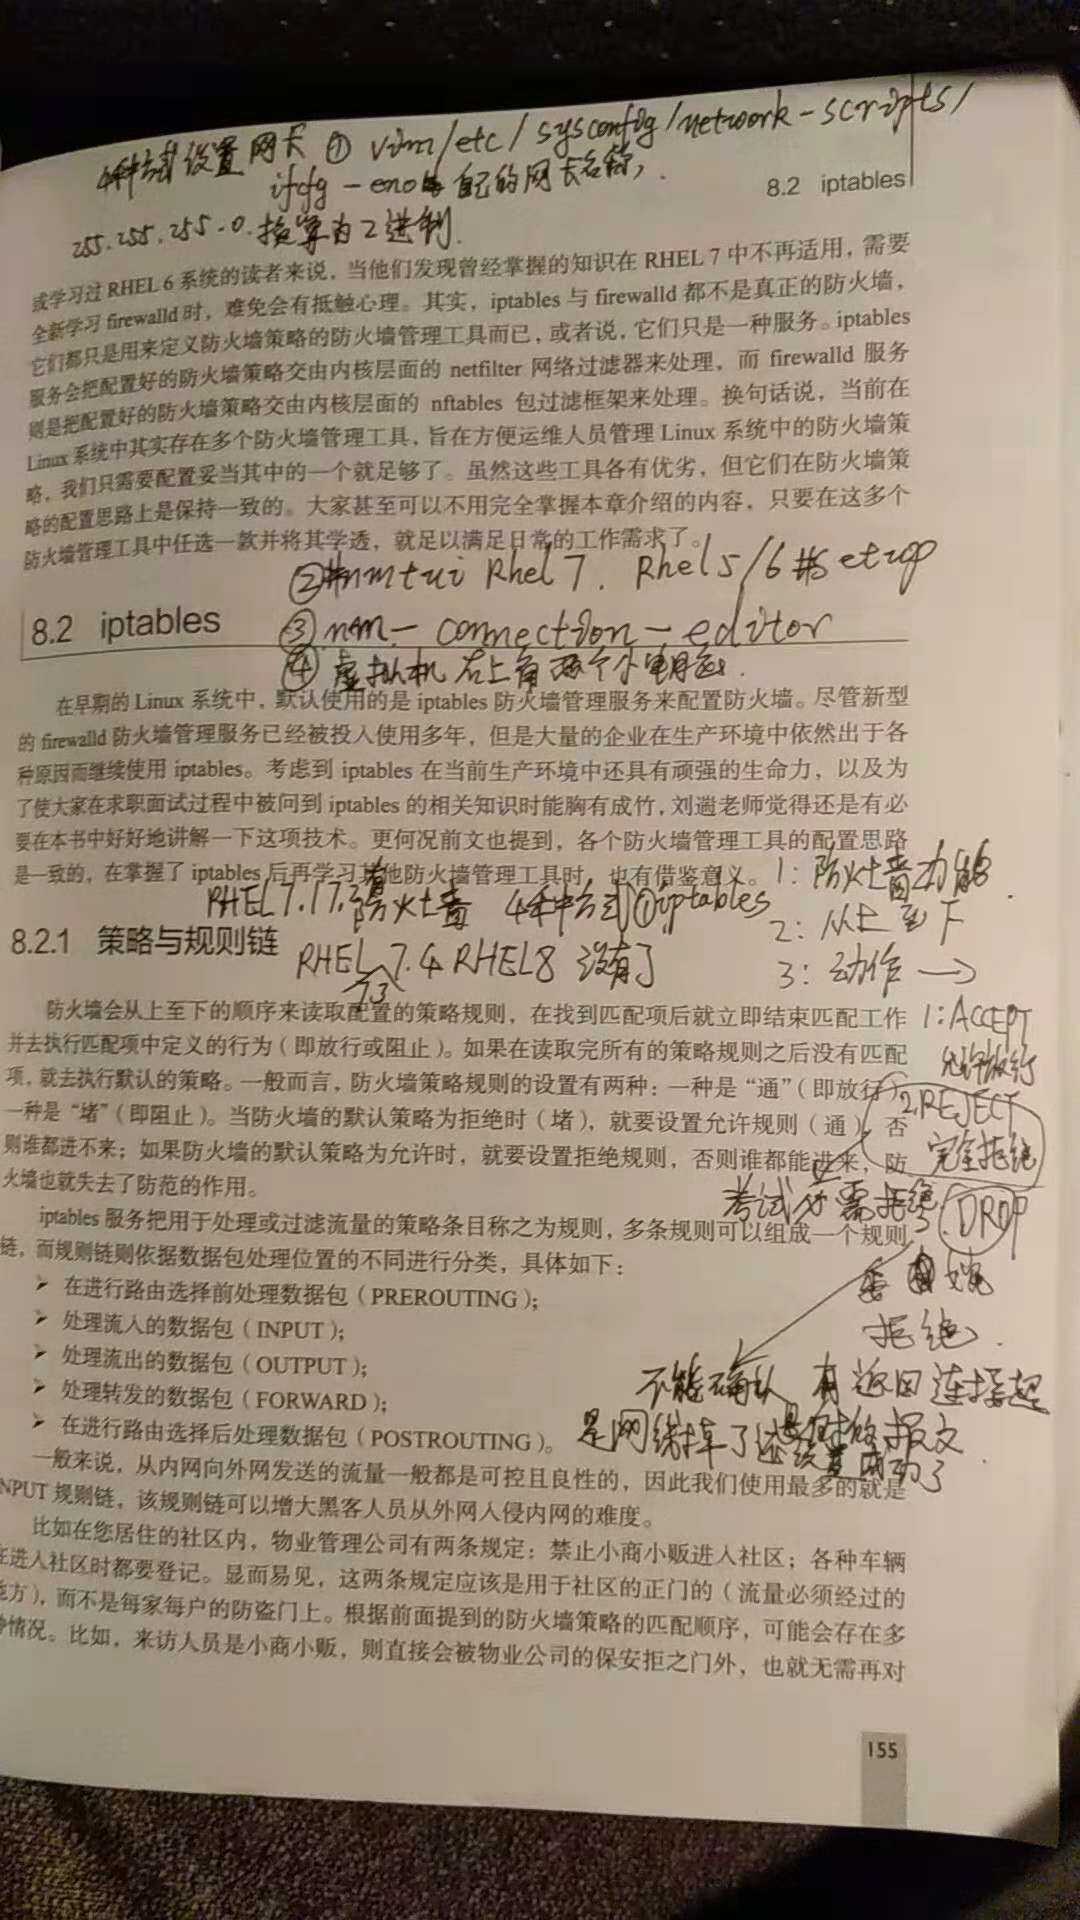 4种方式设置网卡 ① vim/etc/sysconfig/network-scripts/
ifcfg-eno 自己的网卡名称,
8.2 iptables
255.255.255.0.换算为2进制.
或学习过 RHEL 6 系统的读者来说，当他们发现曾经掌握的知识在 RHEL 7 中不再适用，需要
全新学习 firewalld 时，难免会有抵触心理。其实，iptables 与 firewalld 都不是真正的防火墙，
它们都只是用来定义防火墙策略的防火墙管理工具而已，或者说，它们只是一种服务。iptables
服务会把配置好的防火墙策略交由内核层面的 netfilter 网络过滤器来处理，而 firewalld 服务
则是把配置好的防火墙策略交由内核层面的 nftables 包过滤框架来处理。换句话说，当前在
Linux 系统中其实存在多个防火墙管理工具，旨在方便运维人员管理 Linux 系统中的防火墙策
略，我们只需要配置妥当其中的一个就足够了。虽然这些工具各有优劣，但它们在防火墙策
略的配置思路上是保持一致的。大家甚至可以不用完全掌握本章介绍的内容，只要在这多个
防火墙管理工具中任选一款并将其学透，就足以满足日常的工作需求了。
②#nmtui Rhel 7. Rhel5/6 #setup
8.2 iptables
③ nm-connection-editor
④ 虚拟机 右上角 两个小电脑
在早期的 Linux 系统中，默认使用的是 iptables 防火墙管理服务来配置防火墙。尽管新型
的 firewalld 防火墙管理服务已经被投入使用多年，但是大量的企业在生产环境中依然出于各
种原因而继续使用 iptables。考虑到 iptables 在当前生产环境中还具有顽强的生命力，以及为
了使大家在求职面试过程中被问到 iptables 的相关知识时能胸有成竹，刘遄老师觉得还是有必
要在本书中好好地讲解一下这项技术。更何况前文也提到，各个防火墙管理工具的配置思路
是一致的，在掌握了 iptables 后再学习其他防火墙管理工具时，也有借鉴意义。
1: 防火墙功能
RHEL7. 防火墙 4种方式①iptables
2: 从上至下
8.2.1 策略与规则链
RHEL 7.4 RHEL8 没有了
7.3
3: 动作 →
防火墙会从上至下的顺序来读取配置的策略规则，在找到匹配项后就立即结束匹配工作
1: ACCEPT
并去执行匹配项中定义的行为（即放行或阻止）。如果在读取完所有的策略规则之后没有匹配
允许放行
项，就去执行默认的策略。一般而言，防火墙策略规则的设置有两种：一种是“通”（即放行），
2.REJECT
一种是“堵”（即阻止）。当防火墙的默认策略为拒绝时（堵），就要设置允许规则（通），否
完全拒绝
则谁都进不来；如果防火墙的默认策略为允许时，就要设置拒绝规则，否则谁都能进来，防
火墙也就失去了防范的作用。
考试 需拒绝
3. DROP
iptables 服务把用于处理或过滤流量的策略条目称之为规则，多条规则可以组成一个规则
链，而规则链则依据数据包处理位置的不同进行分类，具体如下：
➢ 在进行路由选择前处理数据包（PREROUTING）；
➢ 处理流入的数据包（INPUT）；
拒绝.
➢ 处理流出的数据包（OUTPUT）；
不能确认 有返回连接超
➢ 处理转发的数据包（FORWARD）；
➢ 在进行路由选择后处理数据包（POSTROUTING）。
是网线掉了还是 报文
设置成功了
一般来说，从内网向外网发送的流量一般都是可控且良性的，因此我们使用最多的就是
NPUT 规则链，该规则链可以增大黑客人员从外网入侵内网的难度。
比如在您居住的社区内，物业管理公司有两条规定：禁止小商小贩进入社区；各种车辆
在进入社区时都要登记。显而易见，这两条规定应该是用于社区的正门的（流量必须经过的
地方），而不是每家每户的防盗门上。根据前面提到的防火墙策略的匹配顺序，可能会存在多
种情况。比如，来访人员是小商小贩，则直接会被物业公司的保安拒之门外，也就无需再对
155